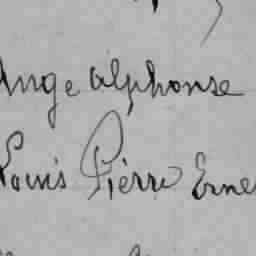 Ange Alphonse
Louis Pierre Erne